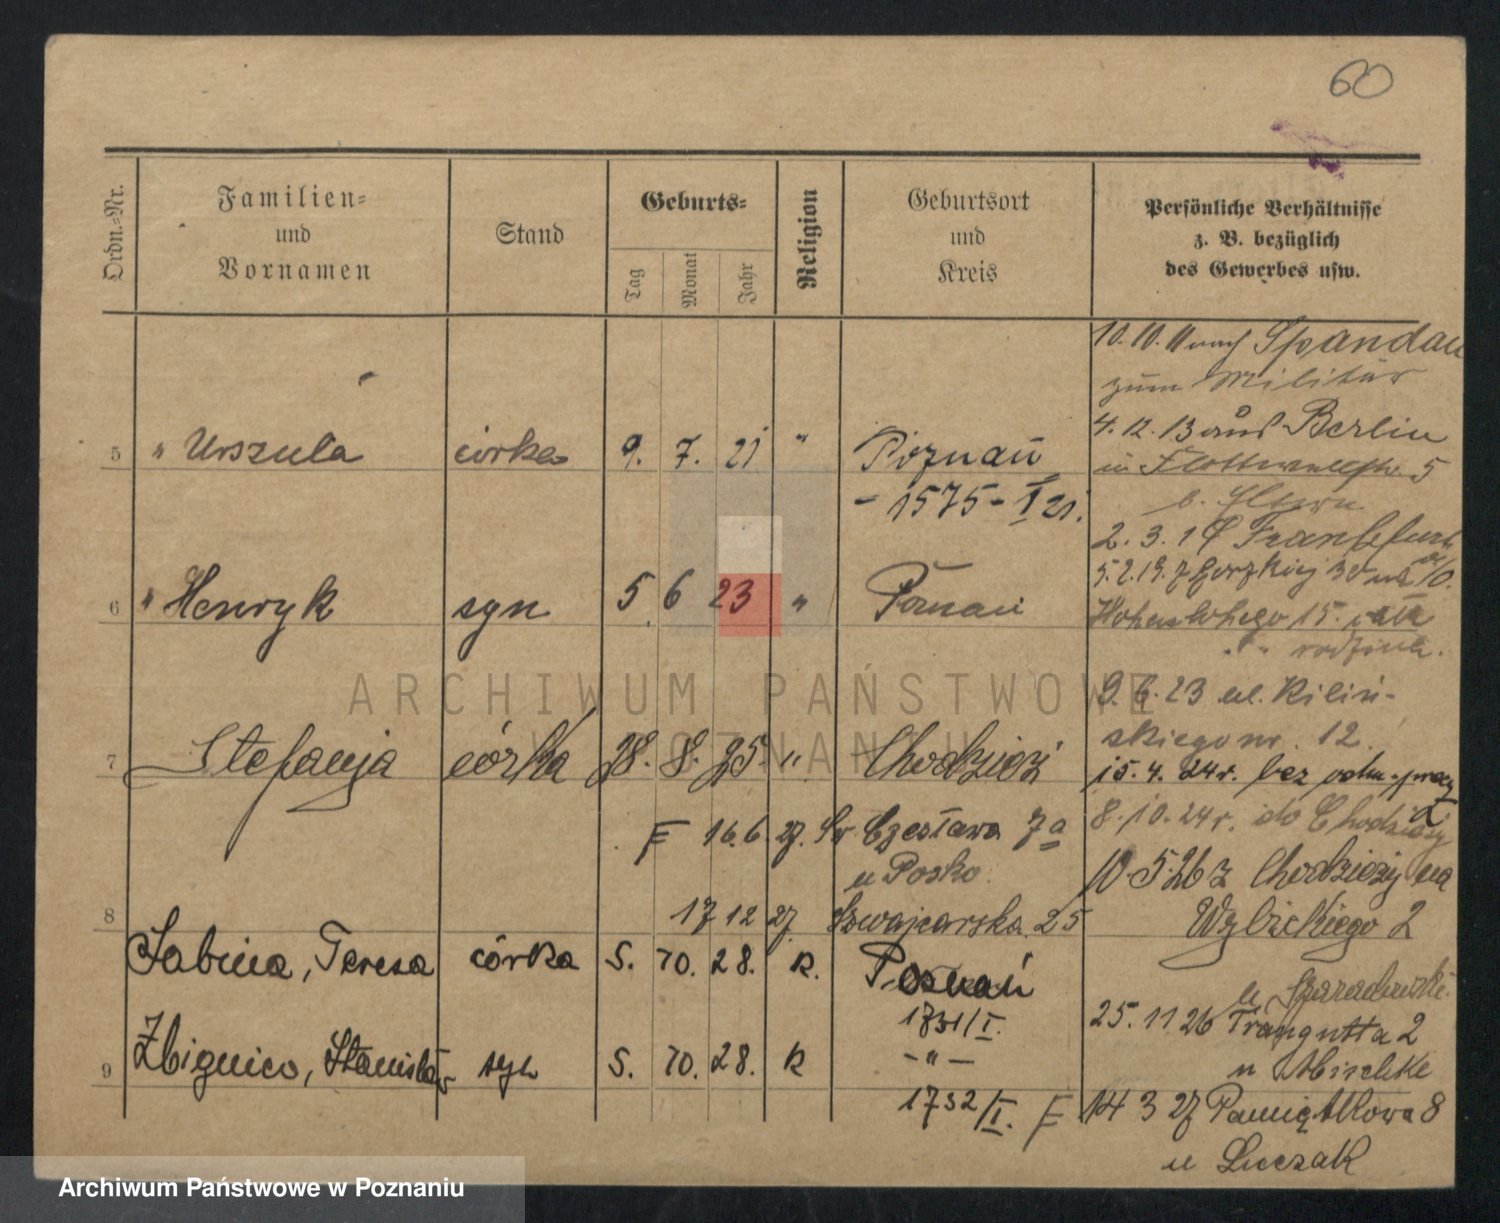 60
Ordn.-Nr.
Familien-
und
Vornamen
Stand
Geburts-
Tag
Monat
Jahr
Religion
Geburtsort
und
Kreis
Persönliche Verhältnisse
z. B. bezüglich
des Gewerbes usw.
10. 10. 11 nach Spandau
zum Militär
4. 12. 13 aus Berlin
5 " Urszula córka 9. 7. 21 " Poznań
in 5
- 1575 - I 21.
b. Eltern
2. 3. 19 Frankfurt
a/O.
6 " Henryk syn 5 6 23 " Poznań
Hohenlohego 15. cała
" " rodzina.
9. 6. 23 ul. Kiliń-
skiego nr. 12.
7 Stefanja córka 28. 8. 25. " Chodzież
15. 4. 24 r. bez odm. pracy
8. 10. 24 r. do Chodzieży
F 16. 6. 27. Św. Czesława 7a
u Posko.
10. 5. 26 z Chodzieży na
Wybickiego 2
8 17 12 27 Szwajcarska 25
Sabina, Teresa córka 5. 10. 28. R. Poznań
1731/I.
u
25. 11 26 Traugutta 2
u Mischke
9 Zbigniew, Stanisław syn 5. 10. 28. R - " -
1732/I. F
14 3 27 Pamiątkowa 8
u Luczak
ARCHIWUM PAŃSTWOWE
W POZNANIU
Archiwum Państwowe w Poznaniu